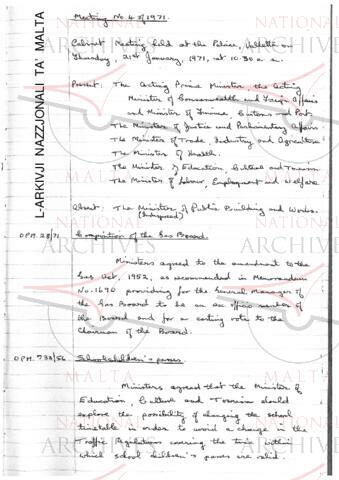 Meeting No. 4 of 1971.
Cabinet Meeting held at the Palace, Valletta on
Thursday, 21st January, 1971, at 10.30 a.m.
Present: The Acting Prime Minister, the Acting
Minister of Commonwealth and Foreign Affairs
and Minister of Finance, Customs and Port.
The Minister of Justice and Parliamentary Affairs
The Minister of Trade, Industry and Agriculture
The Minister of Health.
The Minister of Education, Culture and Tourism
The Minister of Labour, Employment and Welfare
Absent: The Minister of Public Building and Works.
(Indisposed)
OPM. 28/71 Composition of the Gas Board.
Ministers agreed to the amendment to the
Gas Act, 1952, as recommended in Memorandum
No. 1690 providing for the General Manager of
the Gas Board to be an ex officio member of
the Board and for a casting vote to the
Chairman of the Board.
OPM. 738/56 Schoolchildren's passes.
Ministers agreed that the Minister of
Education, Culture and Tourism should
explore the possibility of changing the school
timetable in order to avoid a change in the
Traffic Regulations covering the time within
which school children's passes are valid.
L-ARKIVJI NAZZJONALI TA' MALTA
NATIONAL
ARCHIVES
MALTA